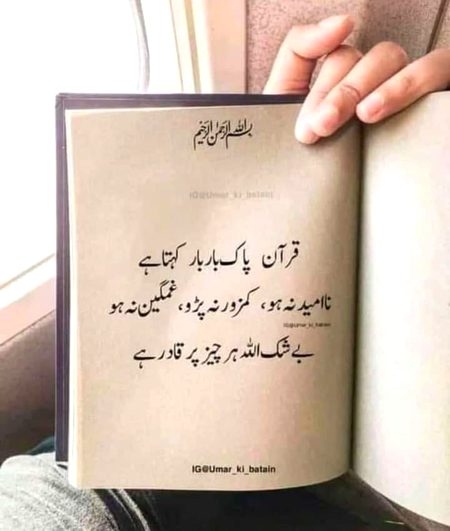 بسم اللہ الرحمن الرحیم
IG@Umar_ki_batain
قرآن پاک بار بار کہتا ہے
نا امید نہ ہو، کمزور نہ پڑو، غمگین نہ ہو
IG@Umar_ki_batain
بے شک اللہ ہر چیز پر قادر ہے
IG@Umar_ki_batain